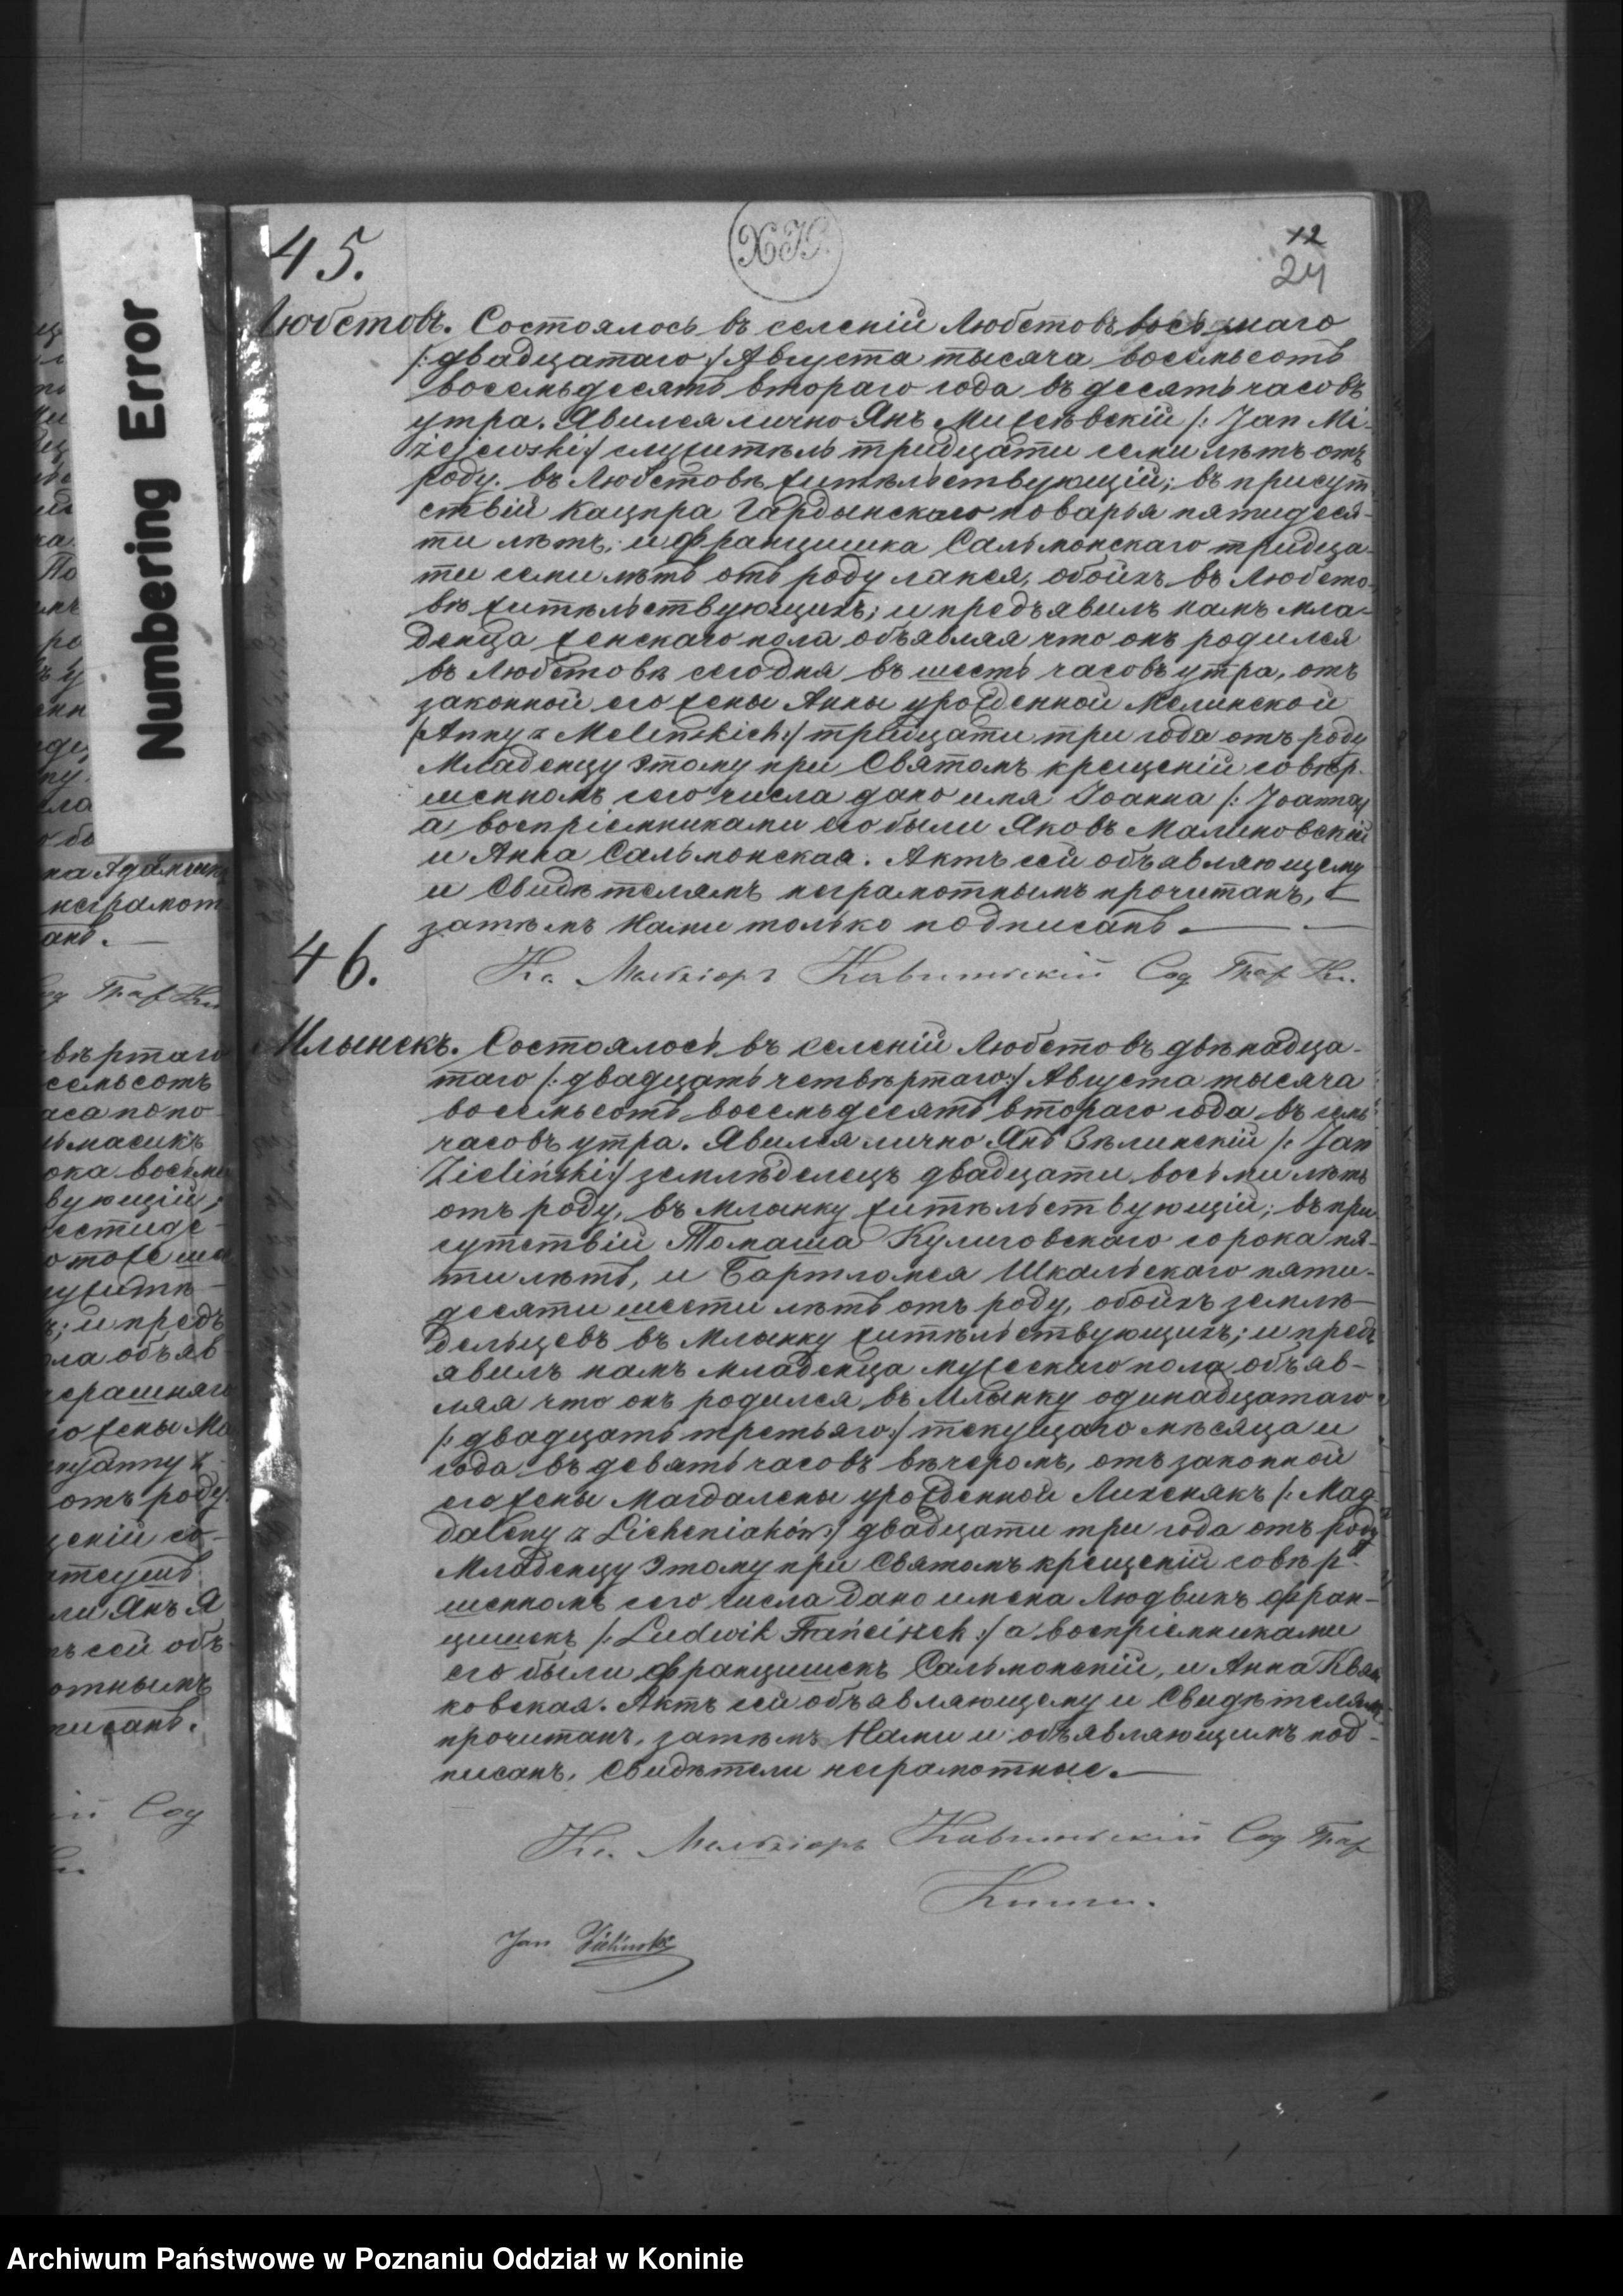 45.
12
24
Любстовъ. Состоялось въ селеній Любстовъ восьмаго
/: двадцатаго :/ Августа тысяча восемьсотъ
восемьдесятъ втораго года въ десять часовъ
утра. Явился лично Янъ Мижеѣвскій /: Jan Mi-
żejewski :/ служитѣль тридцати семи лѣтъ отъ
роду. въ Любстовѣ житѣльствующій; въ присут-
ствій Кацпра Гардынскаго поварья пятидеся-
ти лѣтъ; и Францишка Сальмонскаго тридца-
ти семи лѣтъ отъ роду лакея, обойхъ въ Любсто-
вѣ житѣльствующихъ; и предъявилъ намъ мла-
денца женскаго пола объявляя что онъ родился
въ Любстовѣ сегодня въ шесть часовъ утра, отъ
законной его жены Анны урожденной Мелинской
/: Anny z Melińskich :/ тридцати три года отъ роду
Младенцу этому при Святомъ крещеній совѣр-
шенномъ сего числа дано имя Іоанна /: Joanna :/
а воспріемниками его были Яковъ Малиновскій
и Анна Сальмонская. Актъ сей объявляющему
и Свидѣтелямъ неграмотнымъ прочитанъ,
затѣмъ Нами только подписанъ.
46.
Кс. Мельхіоръ Сод Граж
Млынекъ. Состоялось въ селеній Любстовъ двѣнадца-
таго /: двадцать четвѣртаго :/ Августа тысяча
восемьсотъ восемьдесятъ втораго года въ семь
часовъ утра. Явился лично Янъ Зѣлинскій /: Jan
Zieliński :/ землѣделецъ двадцати восьми лѣтъ
отъ роду, въ Млынку житѣльствующій; въ при-
сутствій Томаша Кулиговскаго сорока пя-
ти лѣтъ, и Бартломея Шкальскаго пяти-
десяти шести лѣтъ отъ роду, обойхъ землѣ-
дельцевъ въ Млынку житѣльствующихъ; и предъ
явилъ намъ младенца мужескаго пола объяв-
ляя что онъ родился въ Млынку одинадцатаго
/: двадцать третьяго :/ текущаго мѣсяца и
года въ девять часовъ вѣчеромъ, отъ законной
его жены Магдалены урожденной Лихенякъ /: Mag-
daleny z Licheniaków :/ двадцати три года отъ роду
Младенцу этому при Святомъ крещеній совѣр-
шенномъ сего числа дано имена Людвикъ Фран-
цишекъ /: Ludwik Franciszek :/ а воспріемниками
его были Францишекъ Сальмонскій, и Анна Квят
ковская. Актъ сей объявляющему и Свидѣтелямъ
прочитанъ, затѣмъ Нами и объявляющимъ под-
писанъ, Свидѣтели неграмотные.
Кс. Мельхіоръ Сод Граж
Jan Zieliński
Numbering Error
Archiwum Państwowe w Poznaniu Oddział w Koninie